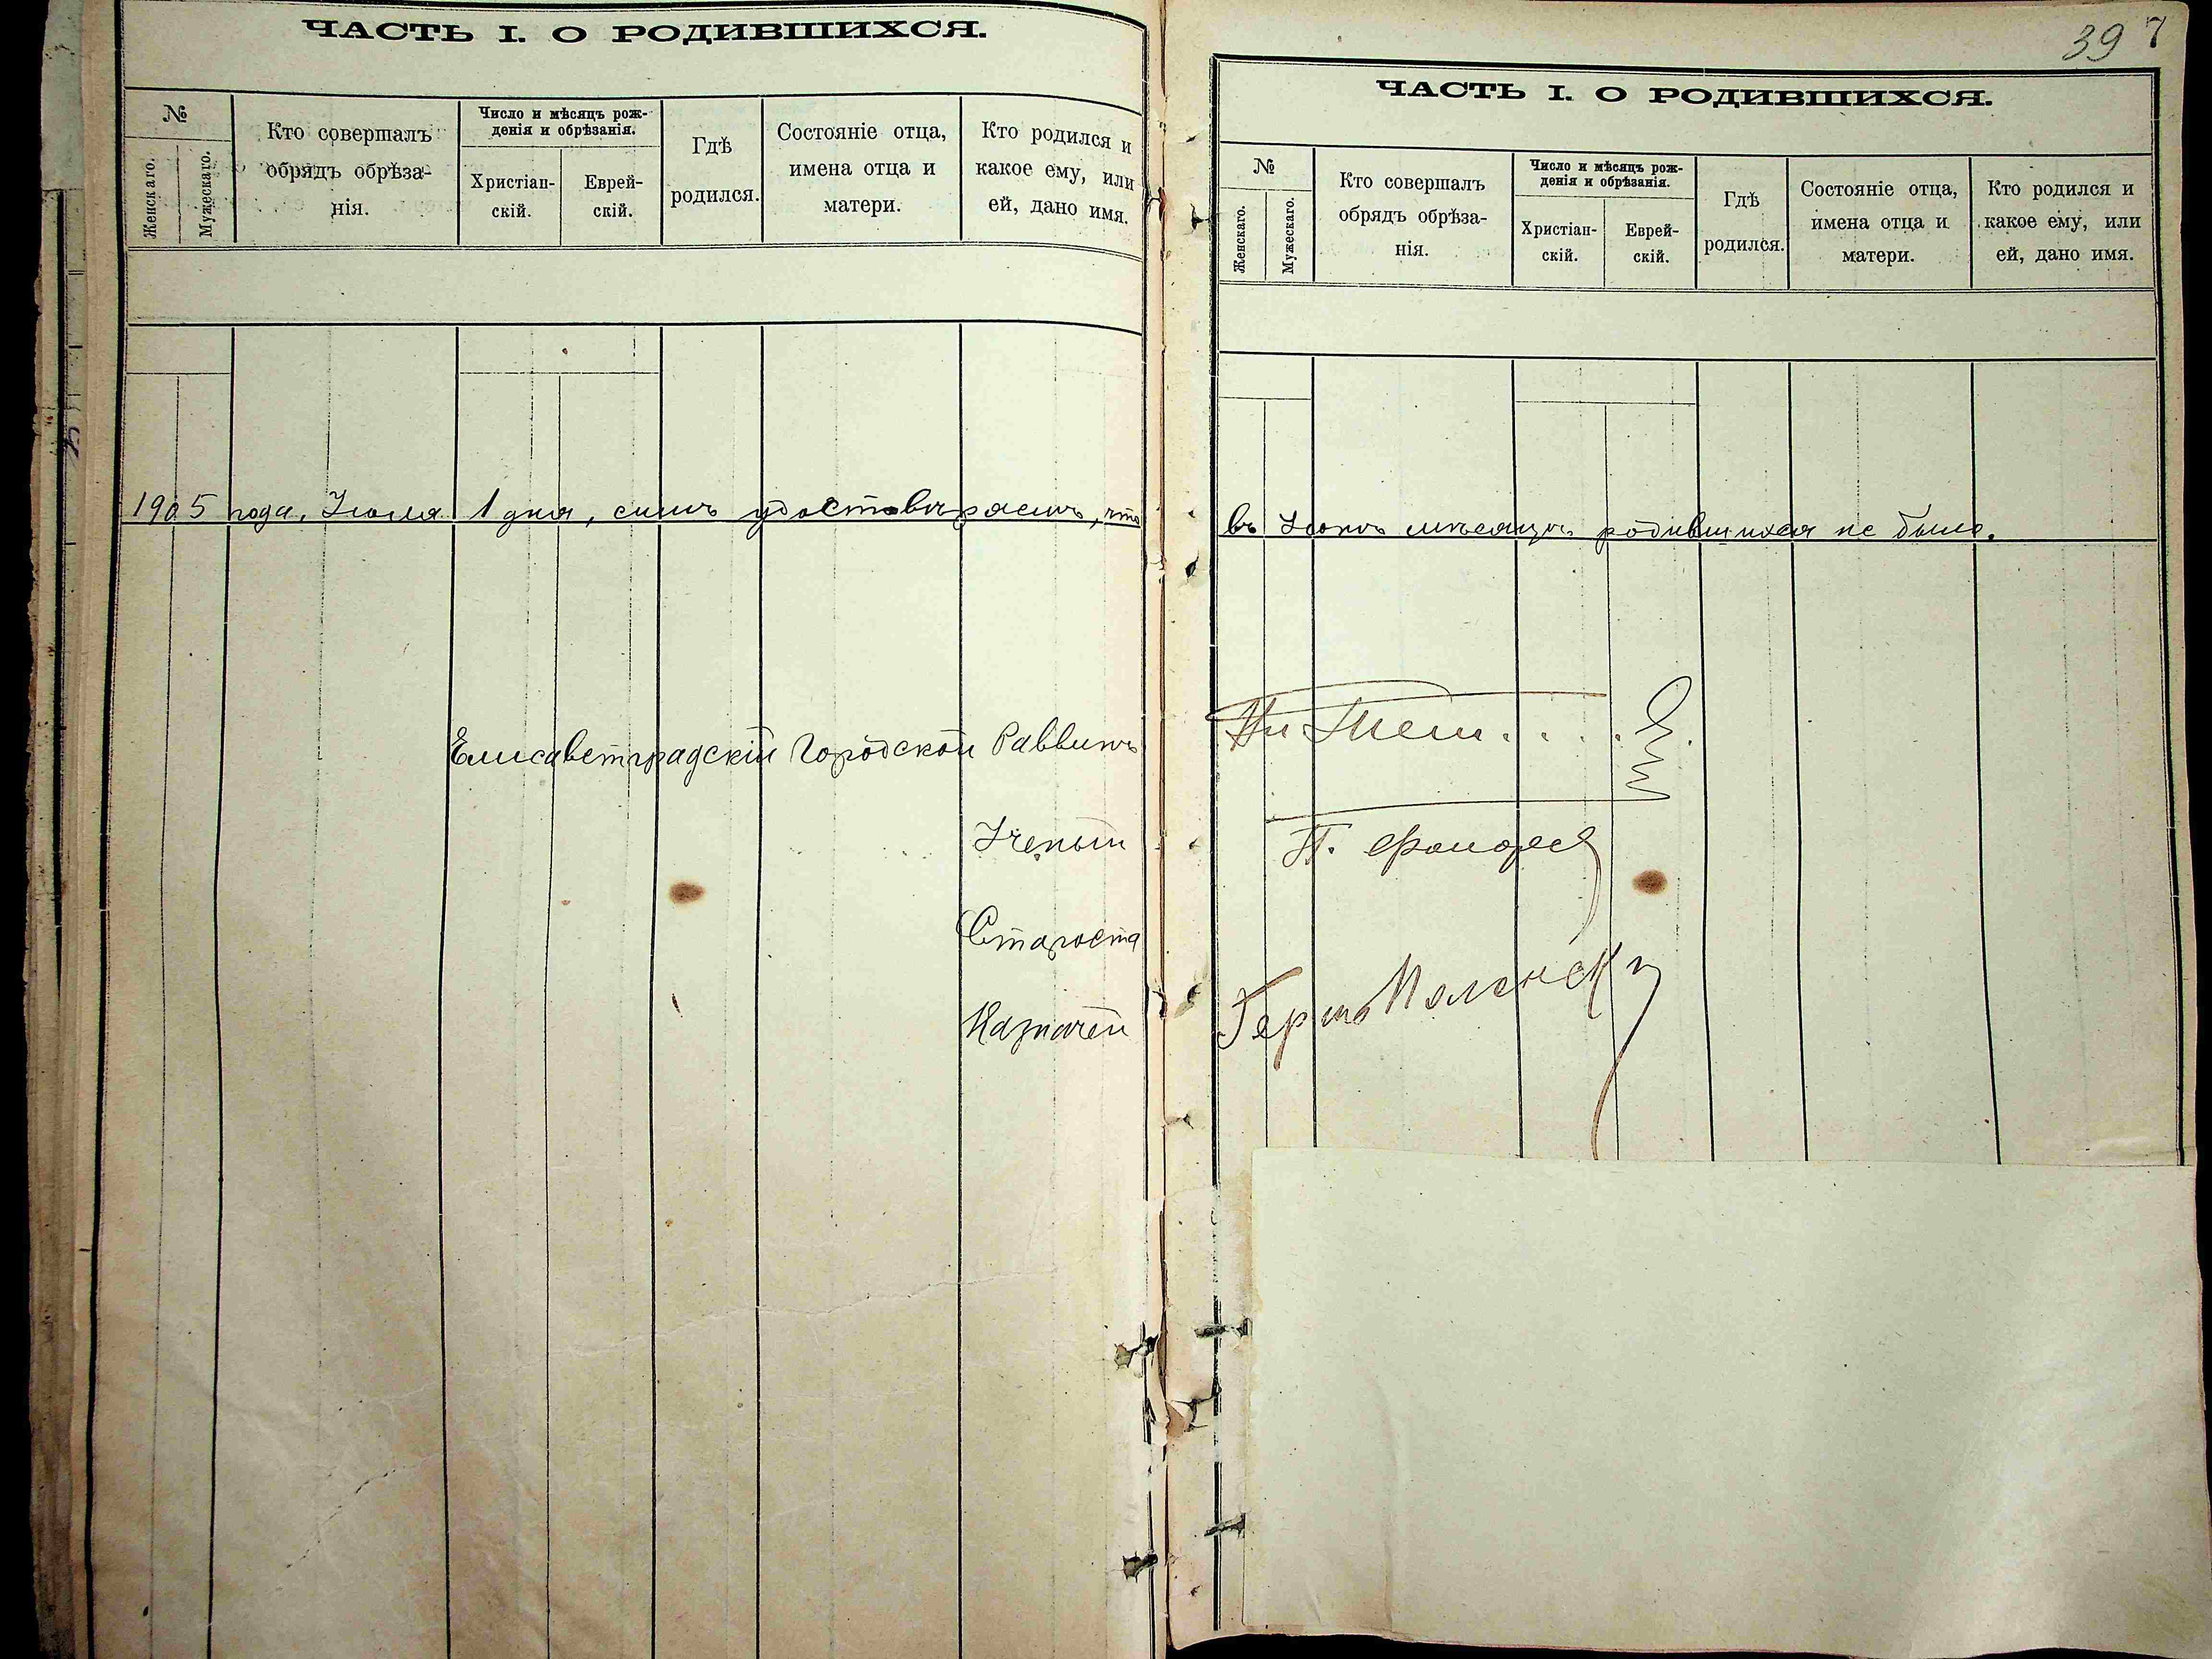 ЧАСТЬ I. О РОДИВШИХСЯ.
№
Женскаго.
Мужескаго.
Кто совершалъ
обрядъ обрѣза-
нія.
Число и мѣсяцъ рож-
денія и обрѣзанія.
Христіан-
скій.
Еврей-
скій.
Гдѣ
родился.
Состояніе отца,
имена отца и
матери.
Кто родился и
какое ему, или
ей, дано имя.
1905 года, Іюля 1 дня, симъ удостовѣряемъ, что
Елисаветградскій Городской Раввинъ
Ученый
Староста
Казначей
39 7
ЧАСТЬ I. О РОДИВШИХСЯ.
№
Женскаго.
Мужескаго.
Кто совершалъ
обрядъ обрѣза-
нія.
Число и мѣсяцъ рож-
денія и обрѣзанія.
Христіан-
скій.
Еврей-
скій.
Гдѣ
родился.
Состояніе отца,
имена отца и
матери.
Кто родился и
какое ему, или
ей, дано имя.
въ Іюнѣ мѣсяцѣ родившихся не было.
П.
Гершъ